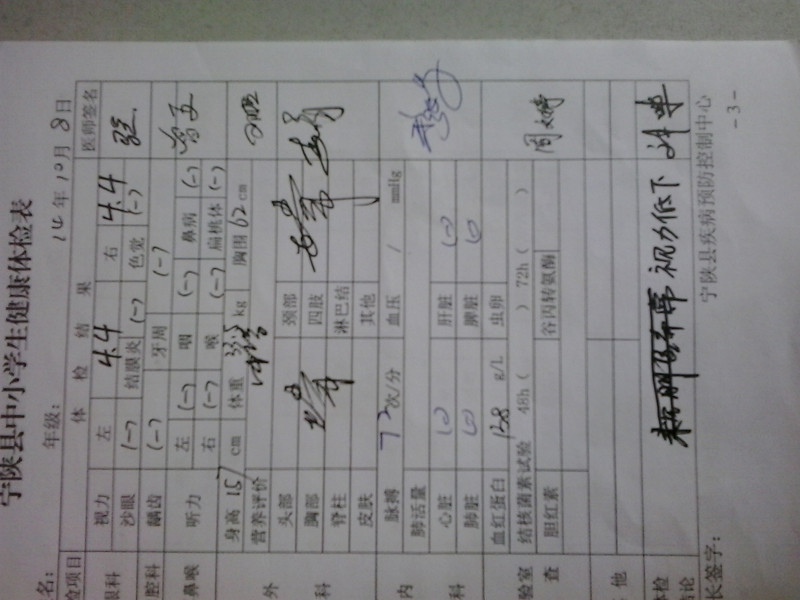 宁陕县中小学生健康体检表
名： 年级： 14年10月8日
检项目 体 检 结 果 医师签名
眼科 视力 左 4.4 右 4.4
沙眼 (-) 结膜炎 (-) 色觉 (-)
腔科 龋齿 (-) 牙周 (-)
鼻喉 听力 左 (-) 咽 (-) 鼻病 (-)
右 (-) 喉 (-) 扁桃体 (-)
外科 身高 157 cm 体重 kg 胸围 62 cm
营养评价
头部 颈部
胸部 四肢
脊柱 淋巴结
皮肤 其他
内科 脉搏 72 次/分 血压 / mmHg
肺活量
心脏 (-) 肝脏 (-)
肺脏 (-) 脾脏 (-)
验室查 血红蛋白 128 g/L 虫卵
结核菌素试验 48h ( ) 72h ( )
胆红素 谷丙转氨酶
他
体检结论 视力低下
长签字： 宁陕县疾病预防控制中心
-3-